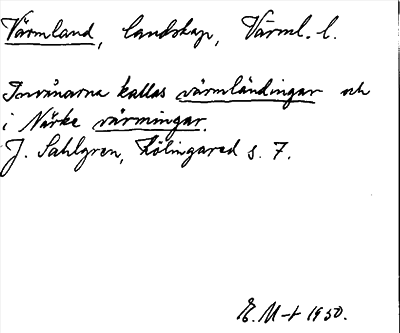 Värmland, landskap, Värml. l.
Invånarna kallas värmländingar och
i Närke värmingar.
J. Sahlgren, Hölingared s. 7.
E. M-t 1950.